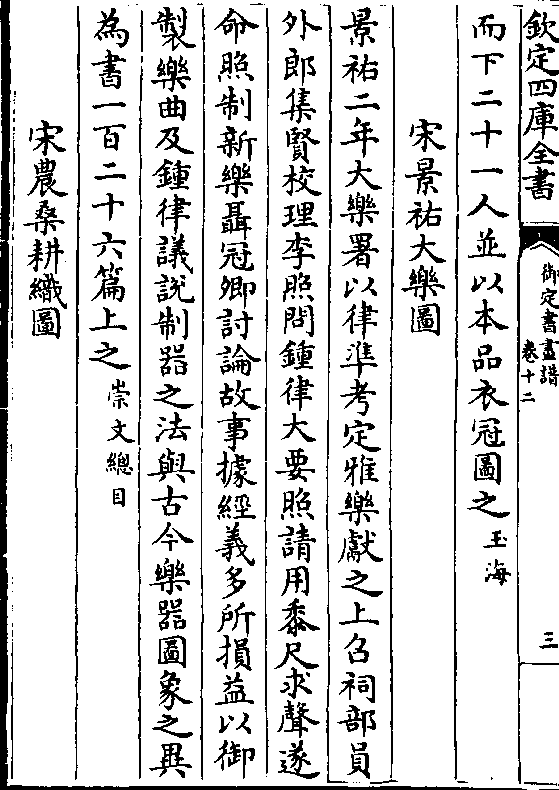 欽定四庫全書
御定書畫譜
卷十二
三
而下二十一人並以本品衣冠圖之玉海
宋景祐大樂圖
景祐二年大樂署以律準考定雅樂獻之上召祠部員
外郎集賢校理李照問鍾律大要照請用黍尺求聲遂
命照制新樂聶冠卿討論故事據經義多所損益以御
製樂曲及鍾律議說制器之法與古今樂器圖象之異
為書一百二十六篇上之崇文總目
宋農桑耕織圖